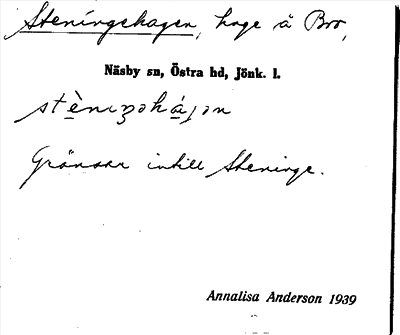 Steningehagen, hage å Bro,
Näsby sn, Östra hd, Jönk. l.
stènɩŋəhá̱gən
Gränsar intill Steninge.
Annalisa Anderson 1939